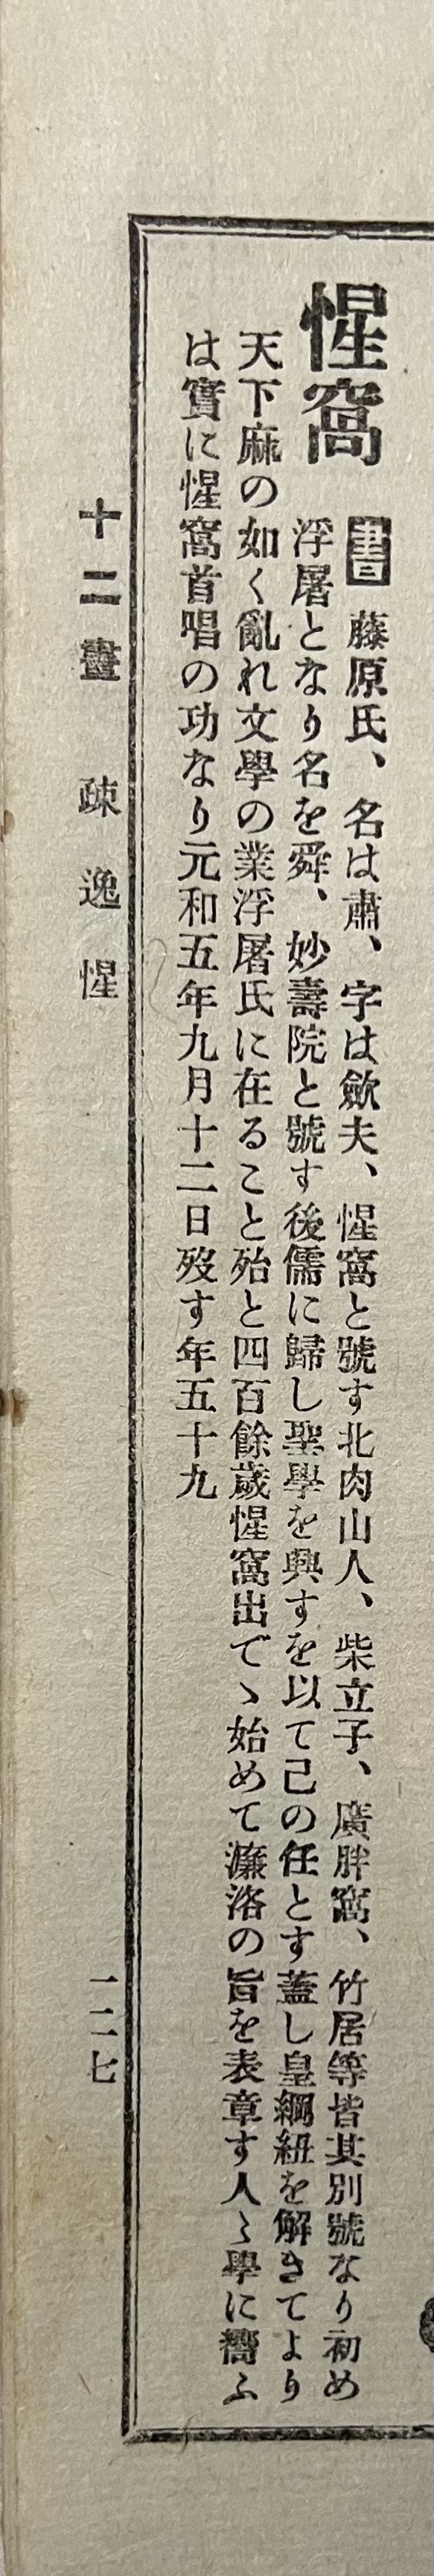 惺窩
書 藤原氏、名は肅、字は歛夫、惺窩と號す北肉山人、柴立子、廣胖窩、竹居等皆其別號なり初め
浮屠となり名を舜、妙壽院と號す後儒に歸し聖學を興すを以て己の任とす蓋し皇綱紐を解きてより
天下麻の如く亂れ文學の業浮屠氏に在ること殆と四百餘歲惺窩出でゝ始めて濂洛の旨を表章す人〻學に嚮ふ
は實に惺窩首唱の功なり元和五年九月十二日歿す年五十九
十二畫 疎逸惺
一二七